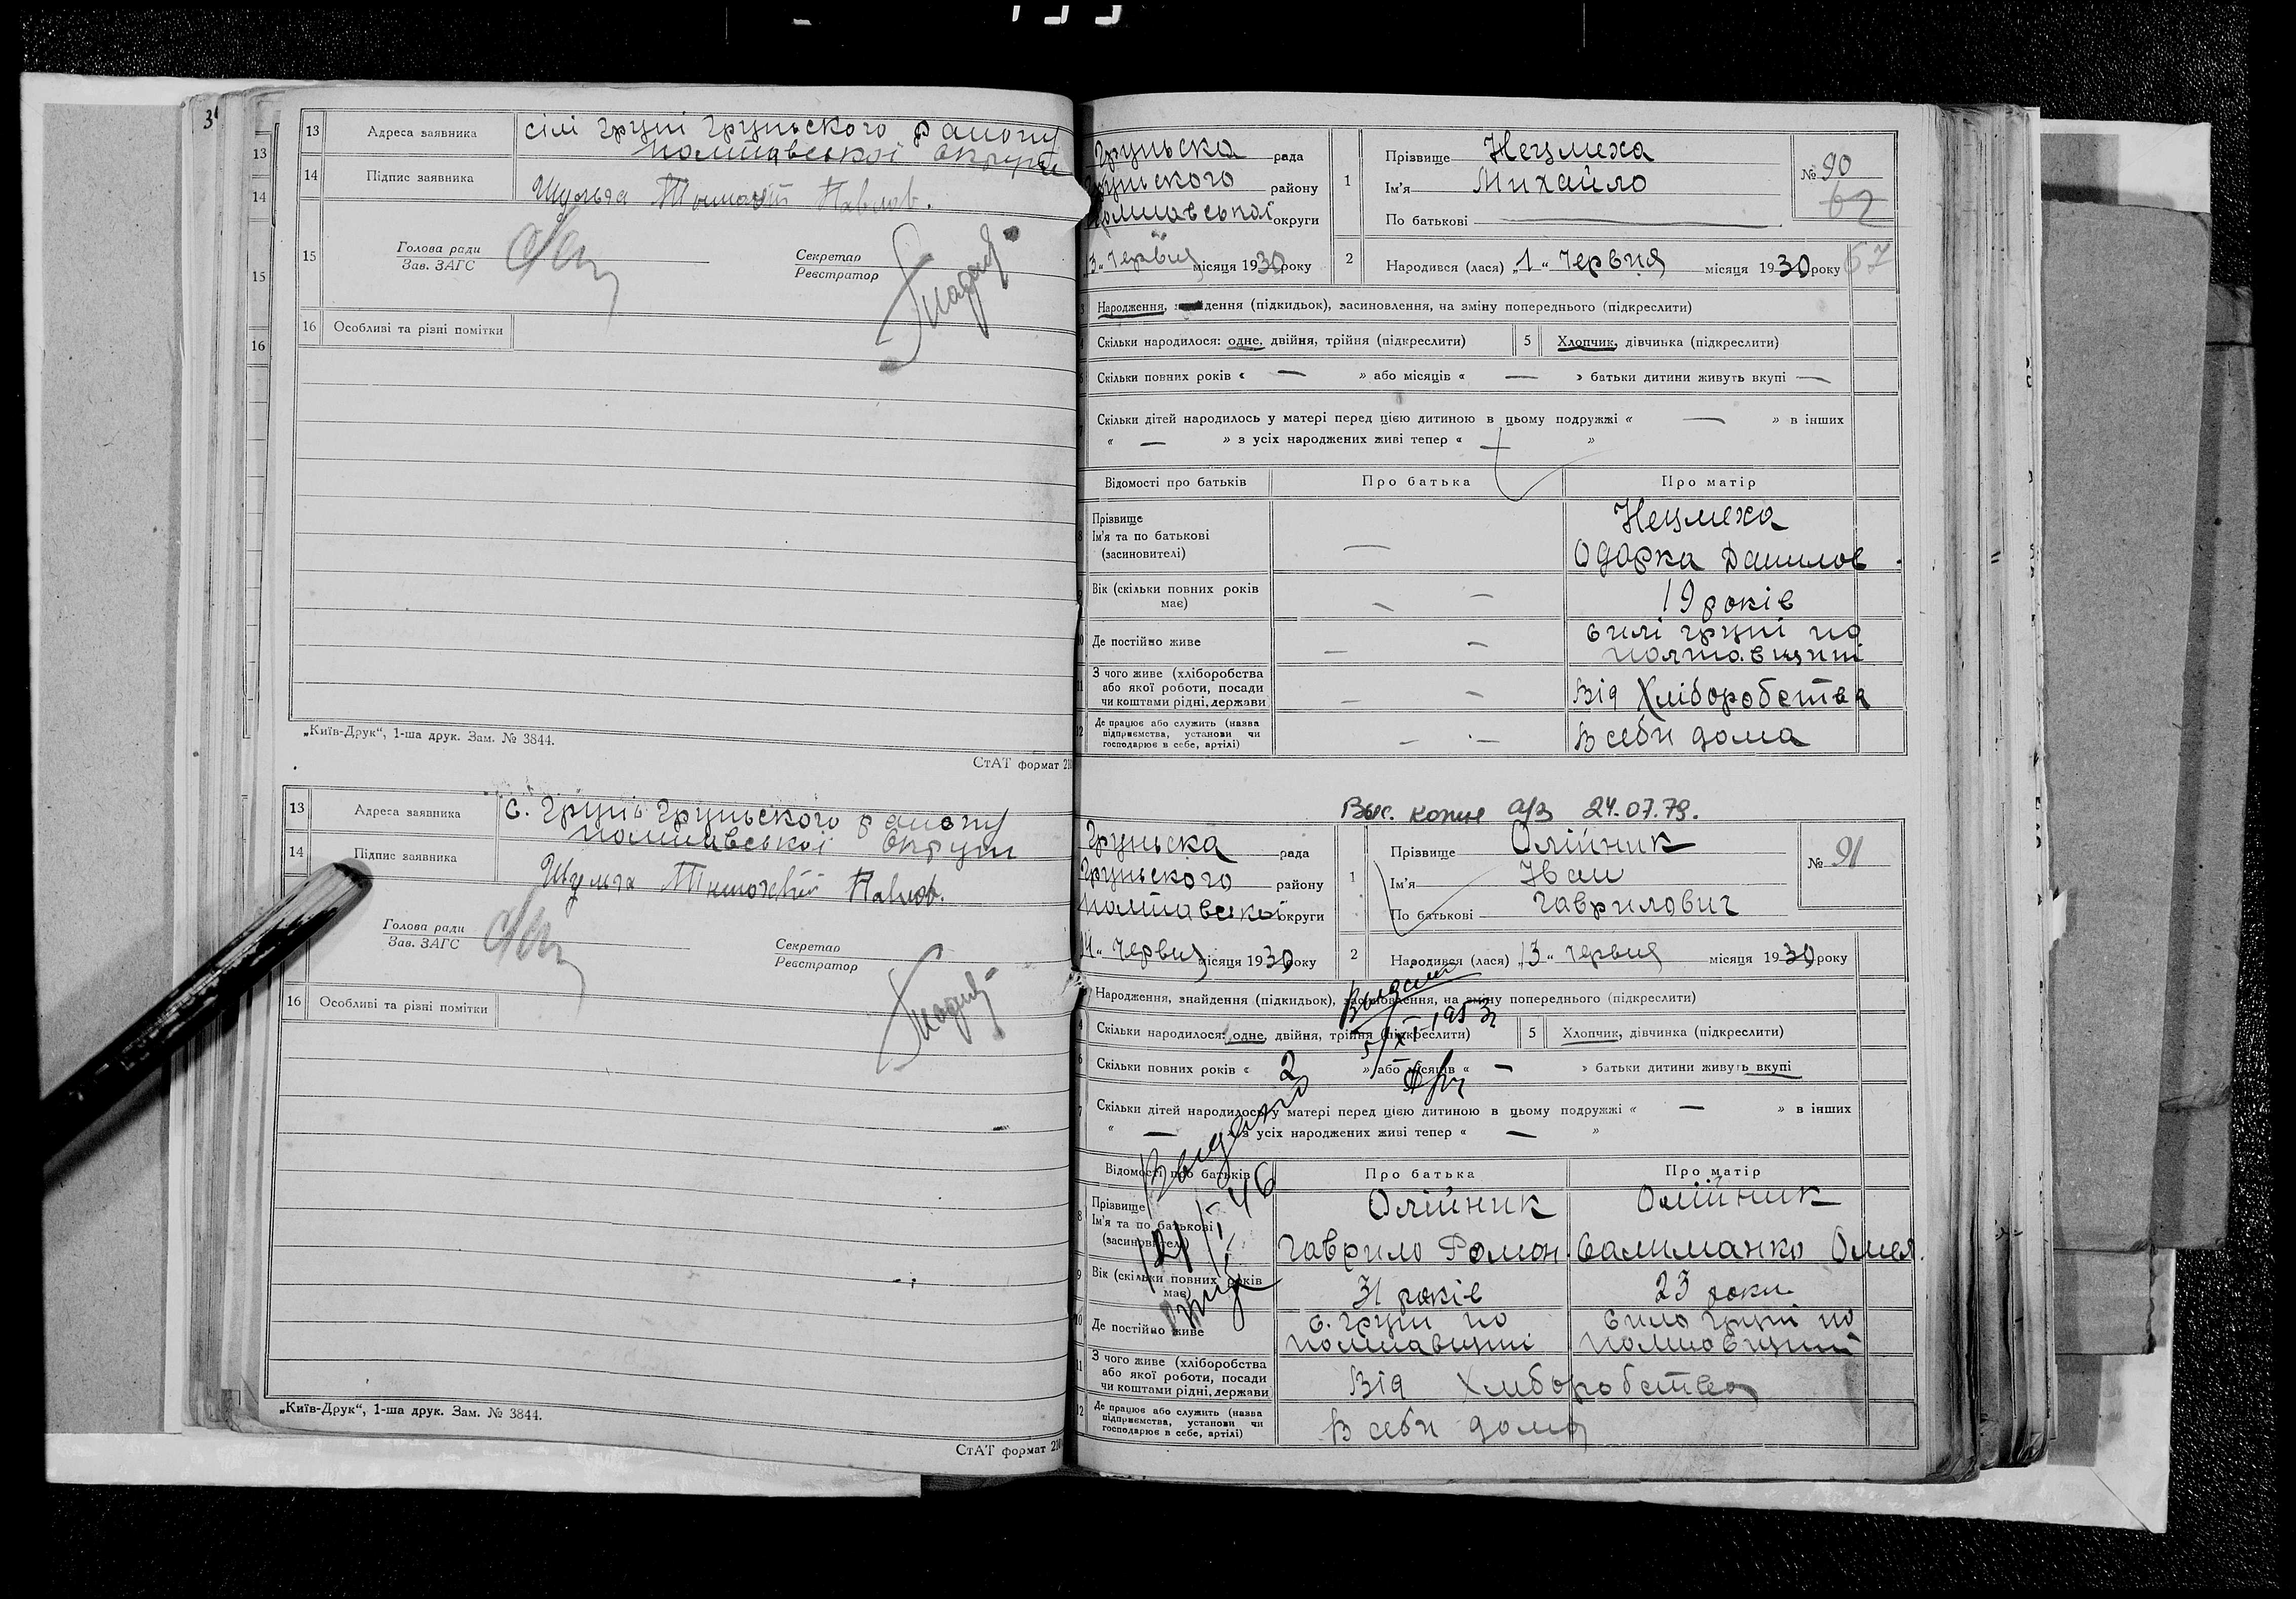 13 Адреса заявника сілі Груні Груньского району
Полтавської округи
14 Підпис заявника Шульга Тимофій Павлов.
15 Голова ради
Зав. ЗАГС
Секретар
Реєстратор
16 Особливі та різні помітки
„Київ-Друк“, 1-ша друк. Зам. № 3844.
СтАТ формат
13 Адреса заявника с. Груні Груньского району
Полтавської округи
14 Підпис заявника Шульга Тимофій Павлов.
Голова ради
Зав. ЗАГС
Секретар
Реєстратор
16 Особливі та різні помітки
„Київ-Друк“, 1-ша друк. Зам. № 3844.
СтАТ формат
13
14
15
16
Груньска рада
Груньского району
Полтавської округи
13 „ Червня місяця 1930 року
1 Прізвище Нецмеха
Ім'я Михайло
По батькові
№ 90
62
67
2 Народився (лася) „1“ Червня місяця 1930 року
Народження, знайдення (підкидьок), засиновлення, на зміну попереднього (підкреслити)
Скільки народилося: одне, двійня, трійня (підкреслити) 5 Хлопчик, дівчинка (підкреслити)
Скільки повних років « — » або місяців « — » батьки дитини живуть вкупі —
Скільки дітей народилось у матері перед цією дитиною в цьому подружжі « — » в інших
« — » з усіх народжених живі тепер « — »
Відомості про батьків Про батька Про матір
Прізвище
Ім'я та по батькові
(засиновителі)
— Нецмеха
Одарка Данилов.
Вік (скільки повних років
має)
— — 19 років
Де постійно живе — — силі Груні на
Полтавщині
З чого живе (хліборобства
або якої роботи, посади
чи коштами рідні, держави
— — Від Хліборобства
12 Де працює або служить (назва
підприємства, установи чи
господарює в себе, артілі)
— — В себи дома
Выс. копия а/з 24.07.79.
Груньска рада
Груньского району
Полтавскої округи
14 „ Червня місяця 1930 року
1 Прізвище Олійник
Ім'я Іван
По батькові Гаврилович
№ 91
2 Народився (лася) „13“ Червня місяця 1930 року
Народження, знайдення (підкидьок), засиновлення, на зміну попереднього (підкреслити)
Выдано
5/XI 1953г
4 Скільки народилося: одне, двійня, трійня (підкреслити) 5 Хлопчик, дівчинка (підкреслити)
6 Скільки повних років « 2 » або місяців « — » батьки дитини живуть вкупі
7 Скільки дітей народилось у матері перед цією дитиною в цьому подружжі « — » в інших
« — » з усіх народжених живі тепер « — »
Выдано
46
Відомості про батьків Про батька Про матір
8 Прізвище
Ім'я та по батькові
(засиновителі)
Олійник Олійник
Гаврило Роман. Салиманко Омел.
9 Вік (скільки повних років
має)
31 років 23 роки
10 Де постійно живе с. Груні по
Полтавщині
сило Груні по
Полтавщині
11 З чого живе (хліборобства
або якої роботи, посади
чи коштами рідні, держави
Від Хліборобства
12 Де працює або служить (назва
підприємства, установи чи
господарює в себе, артілі)
В себи дома